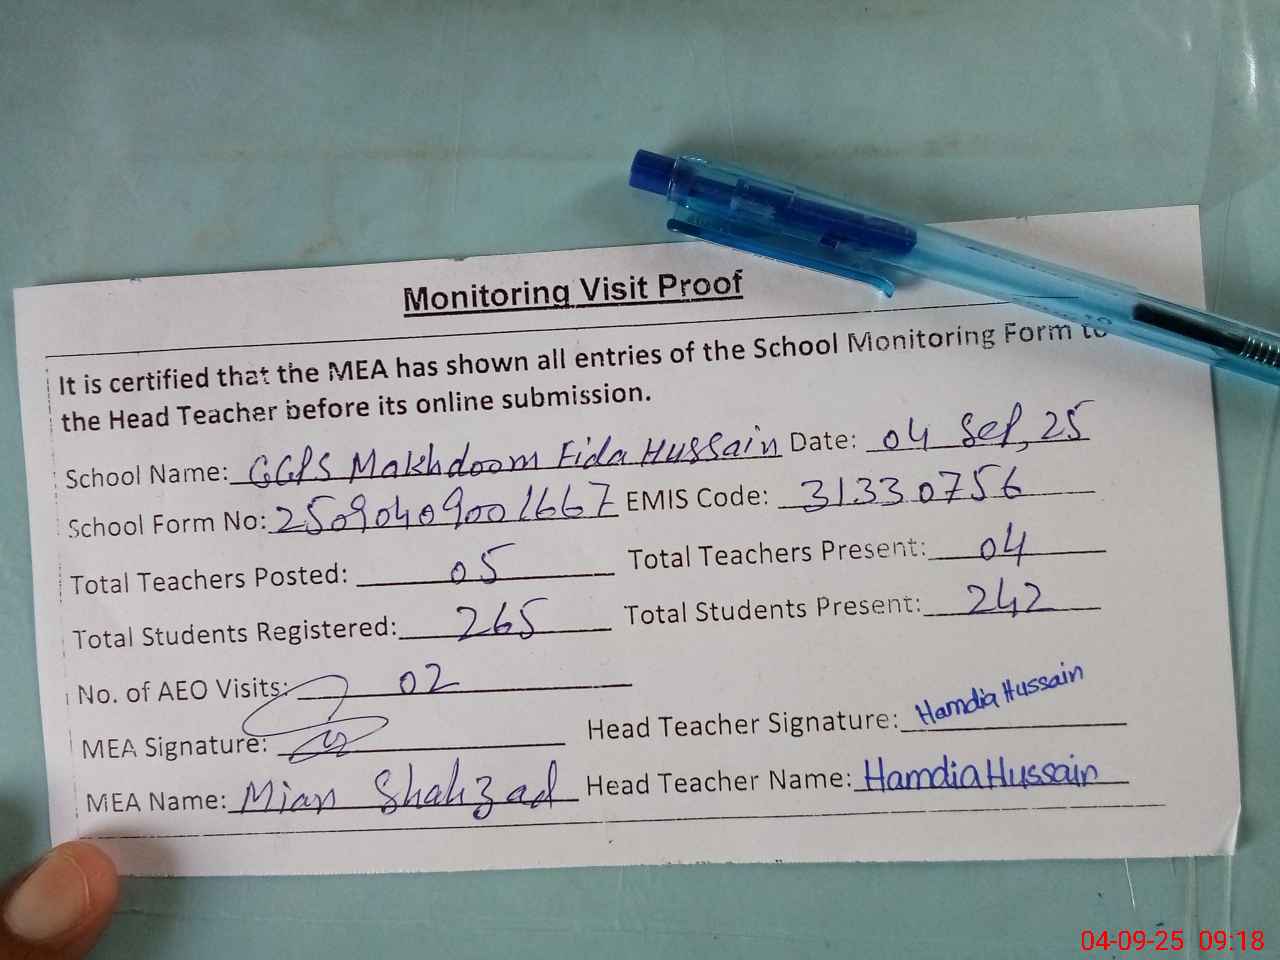 Monitoring Visit Proof
It is certified that the MEA has shown all entries of the School Monitoring Form to
the Head Teacher before its online submission.
School Name: GGPS Makhdoom Fida Hussain Date: 04 Sep, 25
School Form No: 2509040900 1667 EMIS Code: 31330756
Total Teachers Posted: 05 Total Teachers Present: 04
Total Students Registered: 265 Total Students Present: 242
No. of AEO Visits: 02
MEA Signature: Head Teacher Signature: Hamdia Hussain
MEA Name: Mian Shahzad Head Teacher Name: Hamdia Hussain
04-09-25 09:18